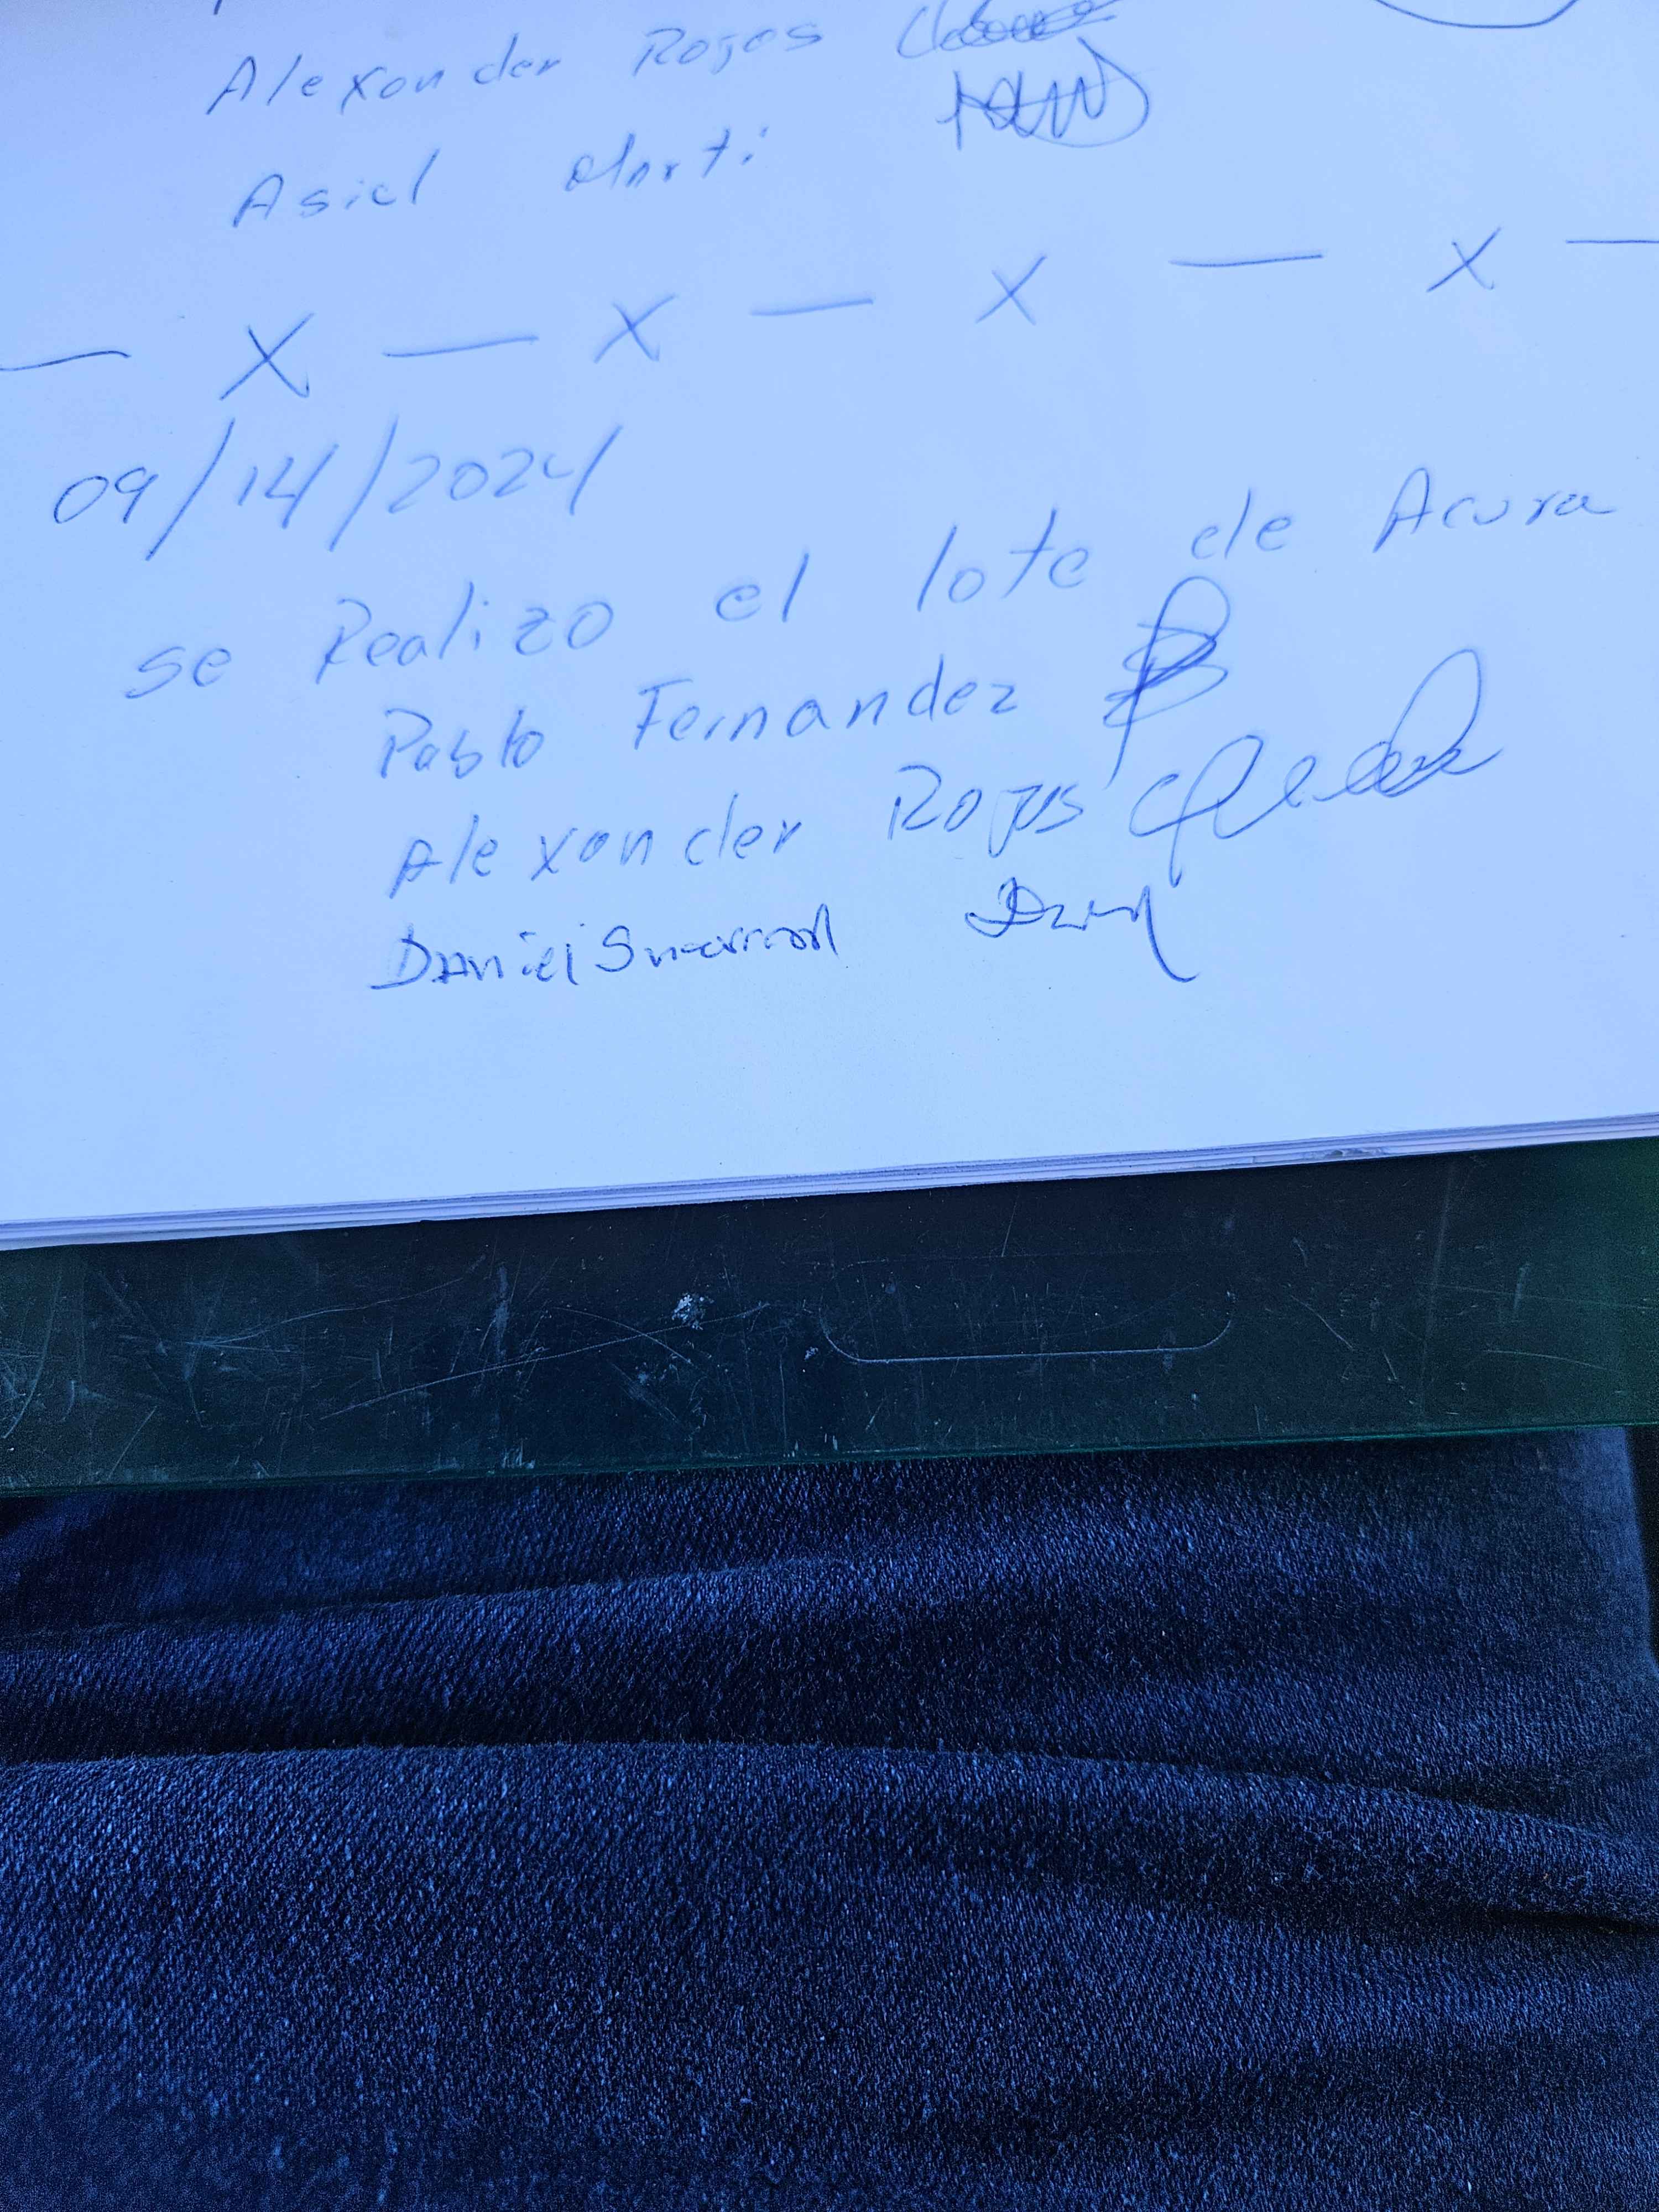 Alexander Rojas
Asiel Marti
— X — X — X — X —
09/14/2024
se Realizo el lote de Acura
Pablo Fernandez
Alexander Rojas
Daniel